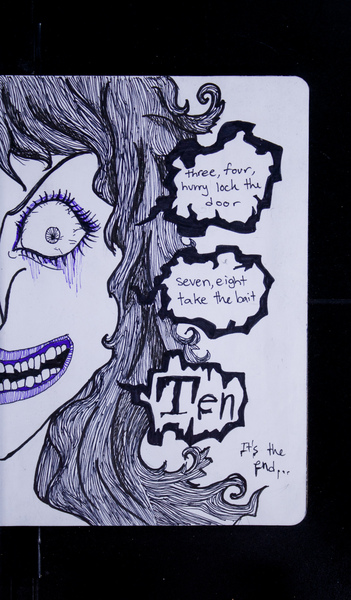 three, four,
hurry lock the
door
seven, eight
take the bait
Ten
It's the
end...